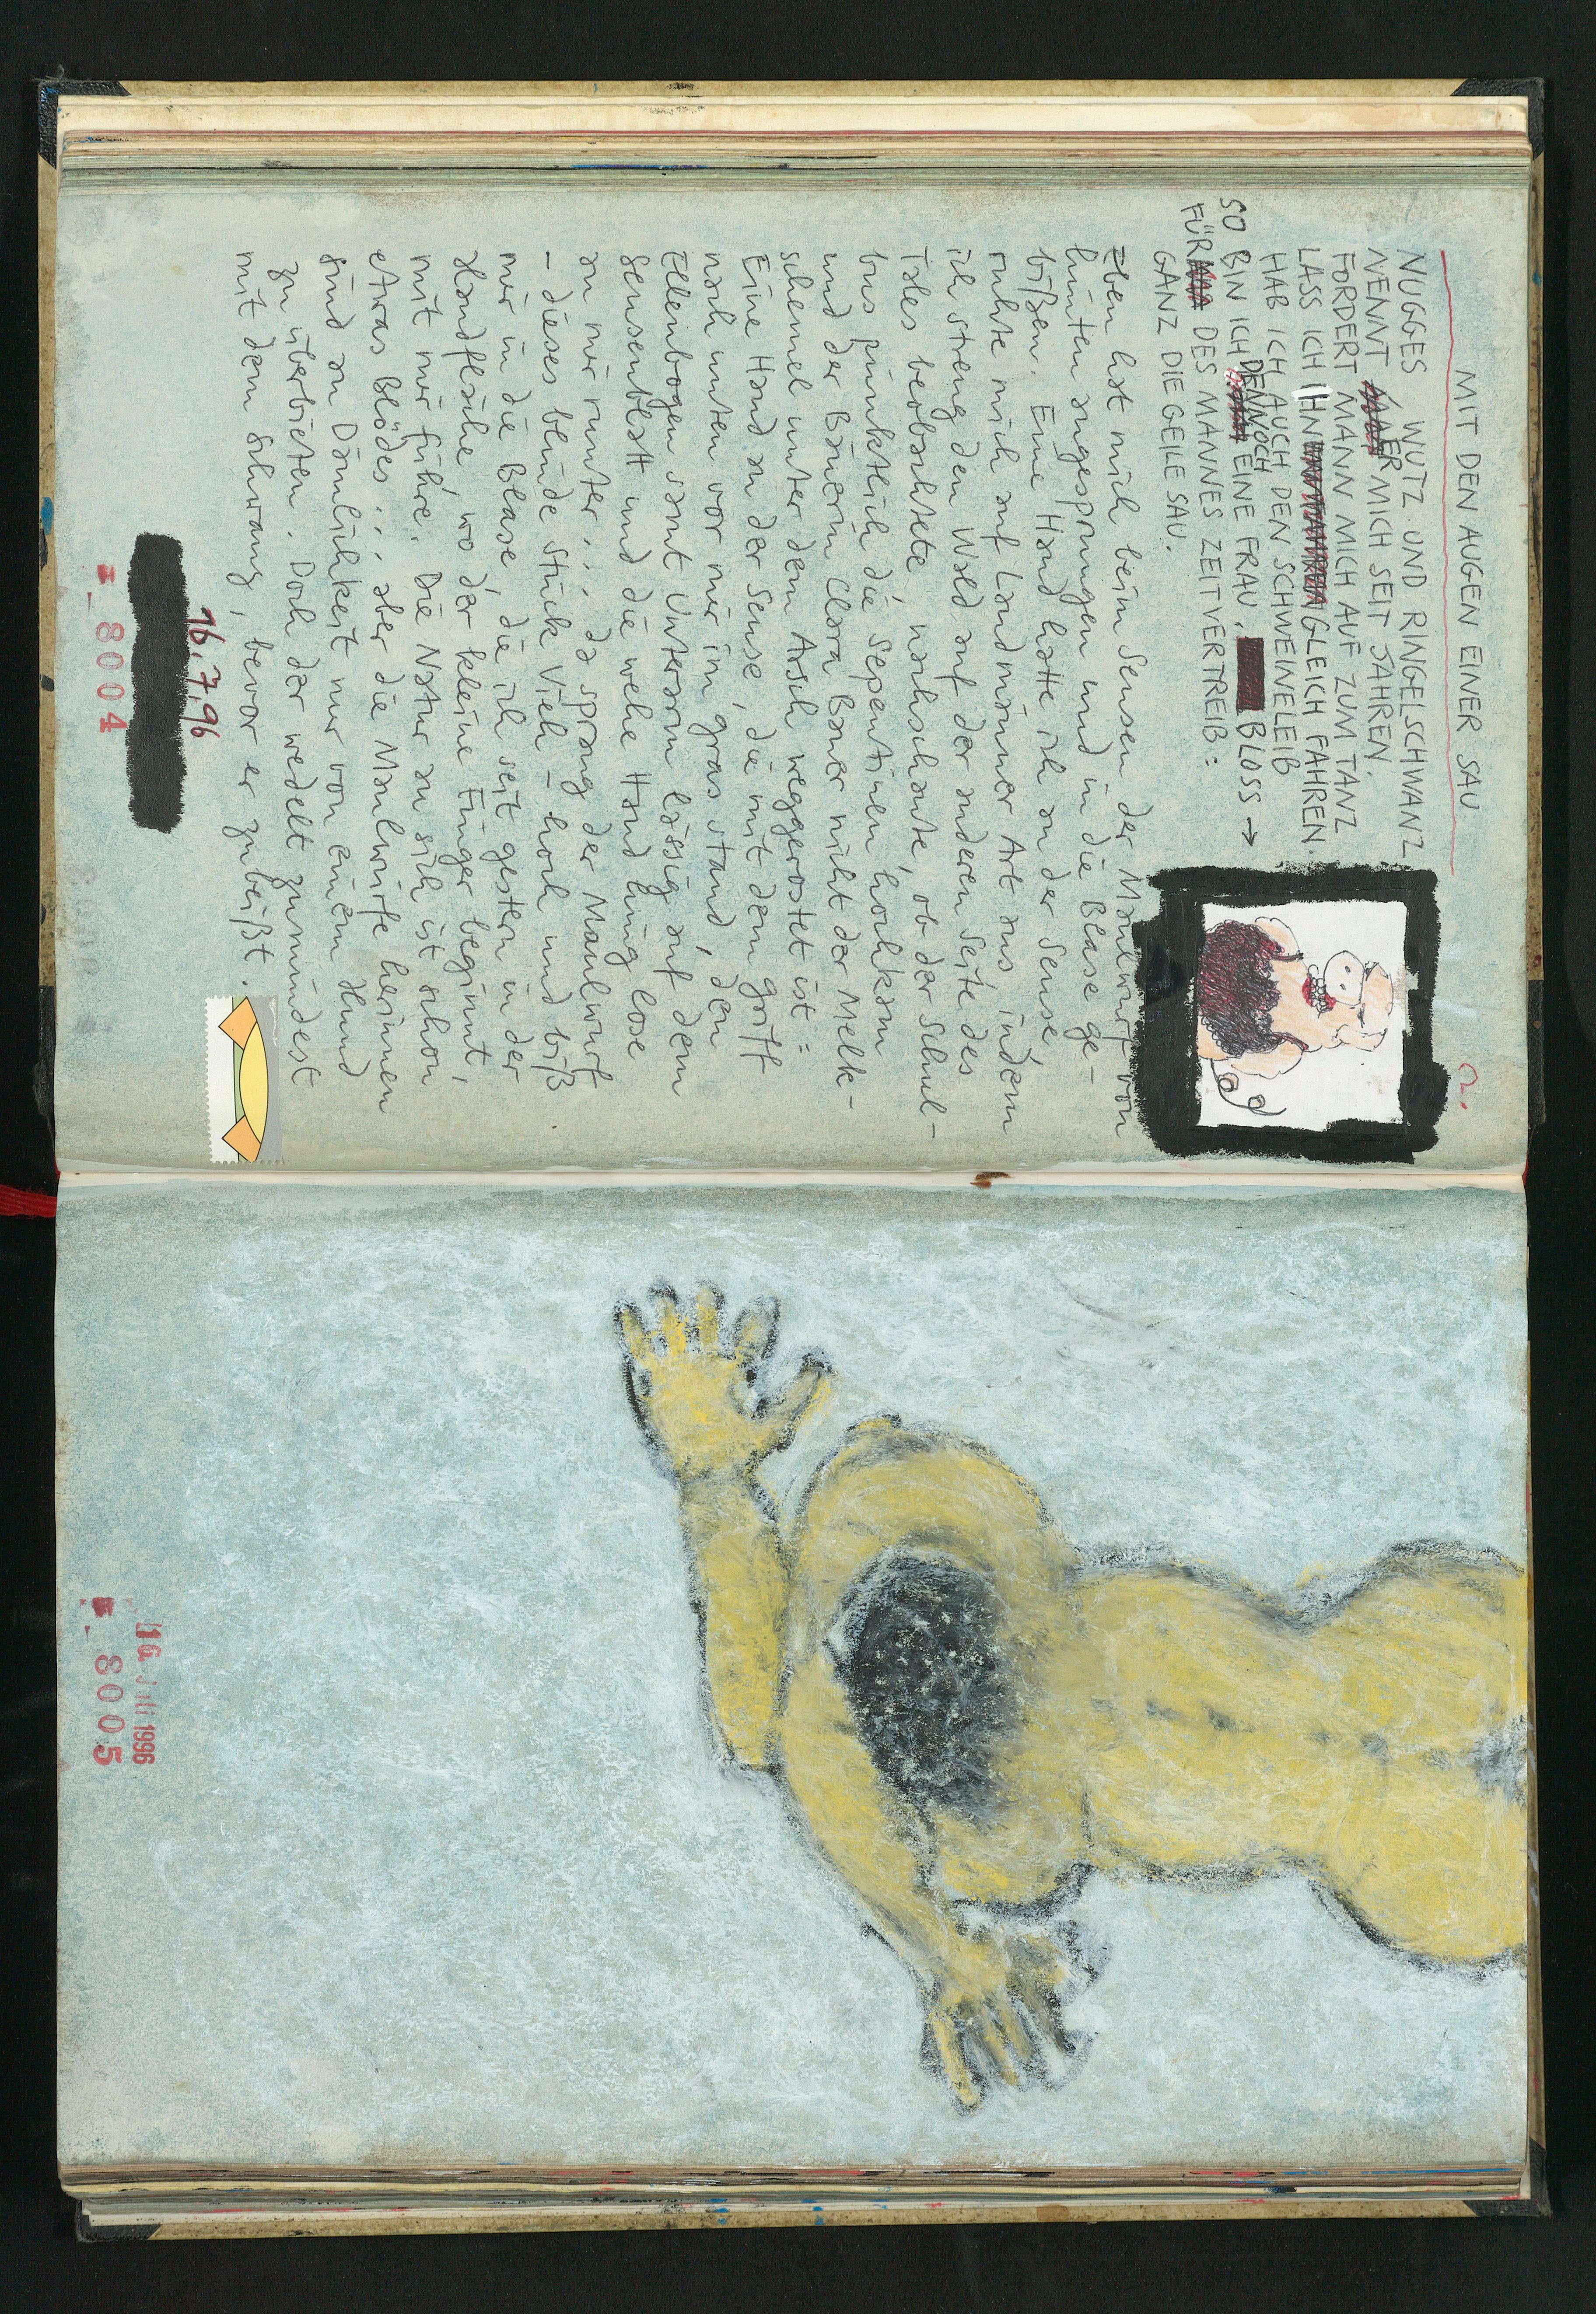 MIT DEN AUGEN EINER SAU
2.
NUGGES WUTZ UND RINGELSCHWANZ
NENNT ER MICH SEIT JAHREN.
FORDERT MANN MICH AUF ZUM TANZ
LASS ICH IHN GLEICH FAHREN.
HAB ICH AUCH DEN SCHWEINELEIB
SO BIN ICH DENNOCH EINE FRAU. BLOSS →
FÜR DES MANNES ZEITVERTREIB:
GANZ DIE GEILE SAU.
Eben hat mich beim Sensen der Maulwurf von
hinten angesprungen und in die Blase ge-
bißen. Eine Hand hatte ich an der Sense,
ruhte mich auf Landmänner Art aus, indem
ich streng den Wald auf der anderen Seite des
Tales beobachtete, nachschaute, ob der Schul-
bus pünktlich die Sepentinen hochkam
und der Bäuerin Clara Bauer nicht der Melk-
schemel unter dem Arsch weggerostet ist =
Eine Hand an der Sense, die mit dem Griff
nach unten vor mir im Gras stand, den
Ellenbogen samt Unterarm lässig auf dem
Sensenblatt und die wehe Hand hing lose
an mir runter... da sprang der Maulwurf
- dieses blinde Stück Vieh - hoch und biß
mir in die Blase, die ich seit gestern in der
Handfläche, wo der kleine Finger beginnt,
mit mir führe. Die Natur an sich ist schon
etwas Blödes... aber die Maulwürfe herinnen
sind an Dämlichkeit nur von einem Hund
zu überbieten. Doch der wedelt zumindest
mit dem Schwanz, bevor er zubeißt.
16.7.96
8004
16. Juli 1996
8005